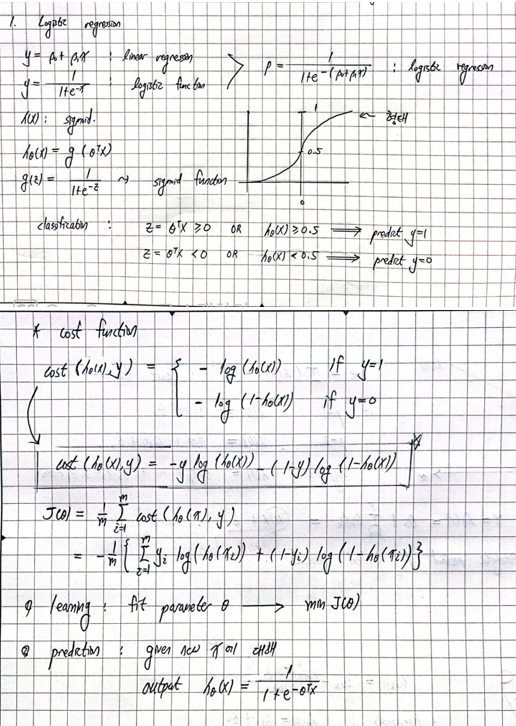 1. Logistic regression
y = β₀ + β₁x : linear regression
y = 1/(1+e^-x) : logistic function
p = 1/(1+e^-(β₀+β₁x)) : logistic regression
h(x) : sigmoid.
hθ(x) = g(θᵀx)
g(z) = 1/(1+e^-z) ~> sigmoid function
1
0.5
0
classification : z = θᵀx ≥ 0 OR hθ(x) ≥ 0.5 ⟹ predict y=1
z = θᵀx < 0 OR hθ(x) < 0.5 ⟹ predict y=0
* cost function
cost(hθ(x), y) = { - log(hθ(x)) if y=1
- log(1-hθ(x)) if y=0
cost(hθ(x), y) = -y log(hθ(x)) - (1-y) log(1-hθ(x))
J(θ) = 1/m Σ_{i=1}^{m} cost(hθ(x), y)
= -1/m { Σ_{i=1}^{m} yᵢ log(hθ(xᵢ)) + (1-yᵢ) log(1-hθ(xᵢ)) }
① learning : fit parameter θ ⟶ min J(θ)
② prediction : given new x에 대해
output hθ(x) = 1/(1+e^-θᵀx)